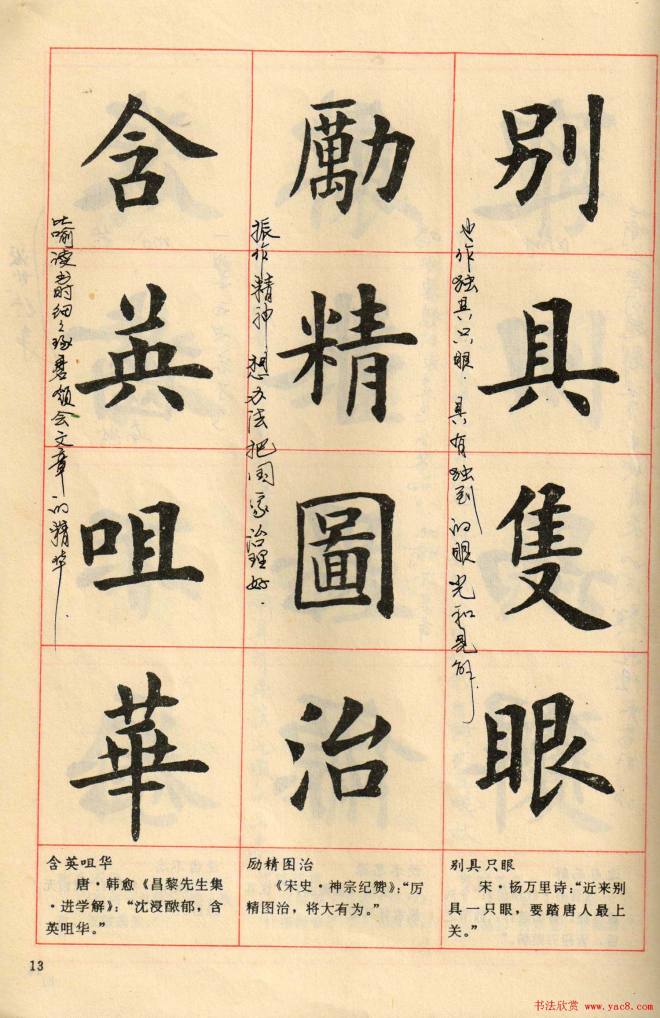 别具隻眼
也作独具只眼。具有独到的眼光和见解。
勵精圖治
振作精神，想办法把国家治理好。
含英咀華
比喻读书时细细琢磨领会文章的精华。
别具只眼
宋·杨万里诗：“近来别
具一只眼，要踏唐人最上
关。”
励精图治
《宋史·神宗纪赞》：“厉
精图治，将大有为。”
含英咀华
唐·韩愈《昌黎先生集
·进学解》：“沈浸醲郁，含
英咀华。”
13
书法欣赏 www.yac8.com